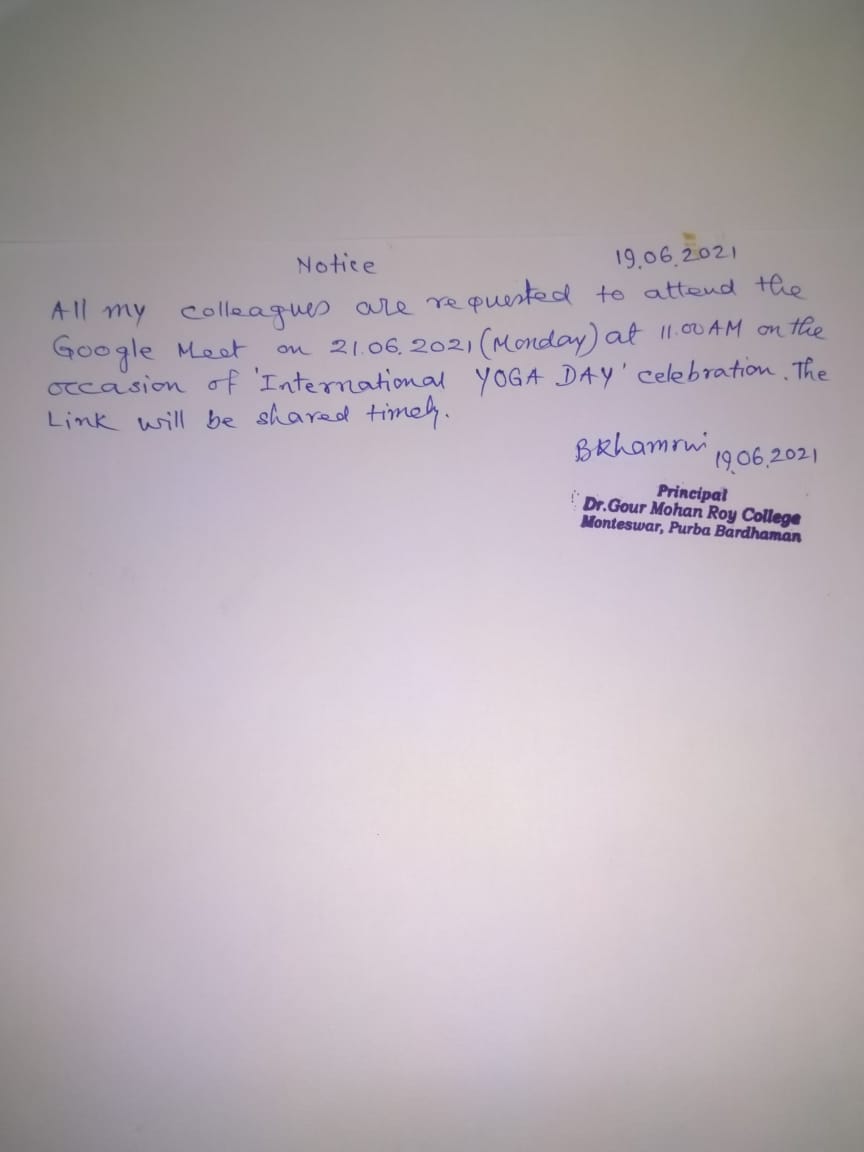 Notice 19.06.2021
All my colleagues are requested to attend the
Google Meet on 21.06.2021 (Monday) at 11.00 AM on the
occasion of 'International YOGA DAY' celebration. The
Link will be shared timely.
BKhamrui 19.06.2021
Principal
Dr.Gour Mohan Roy College
Monteswar, Purba Bardhaman